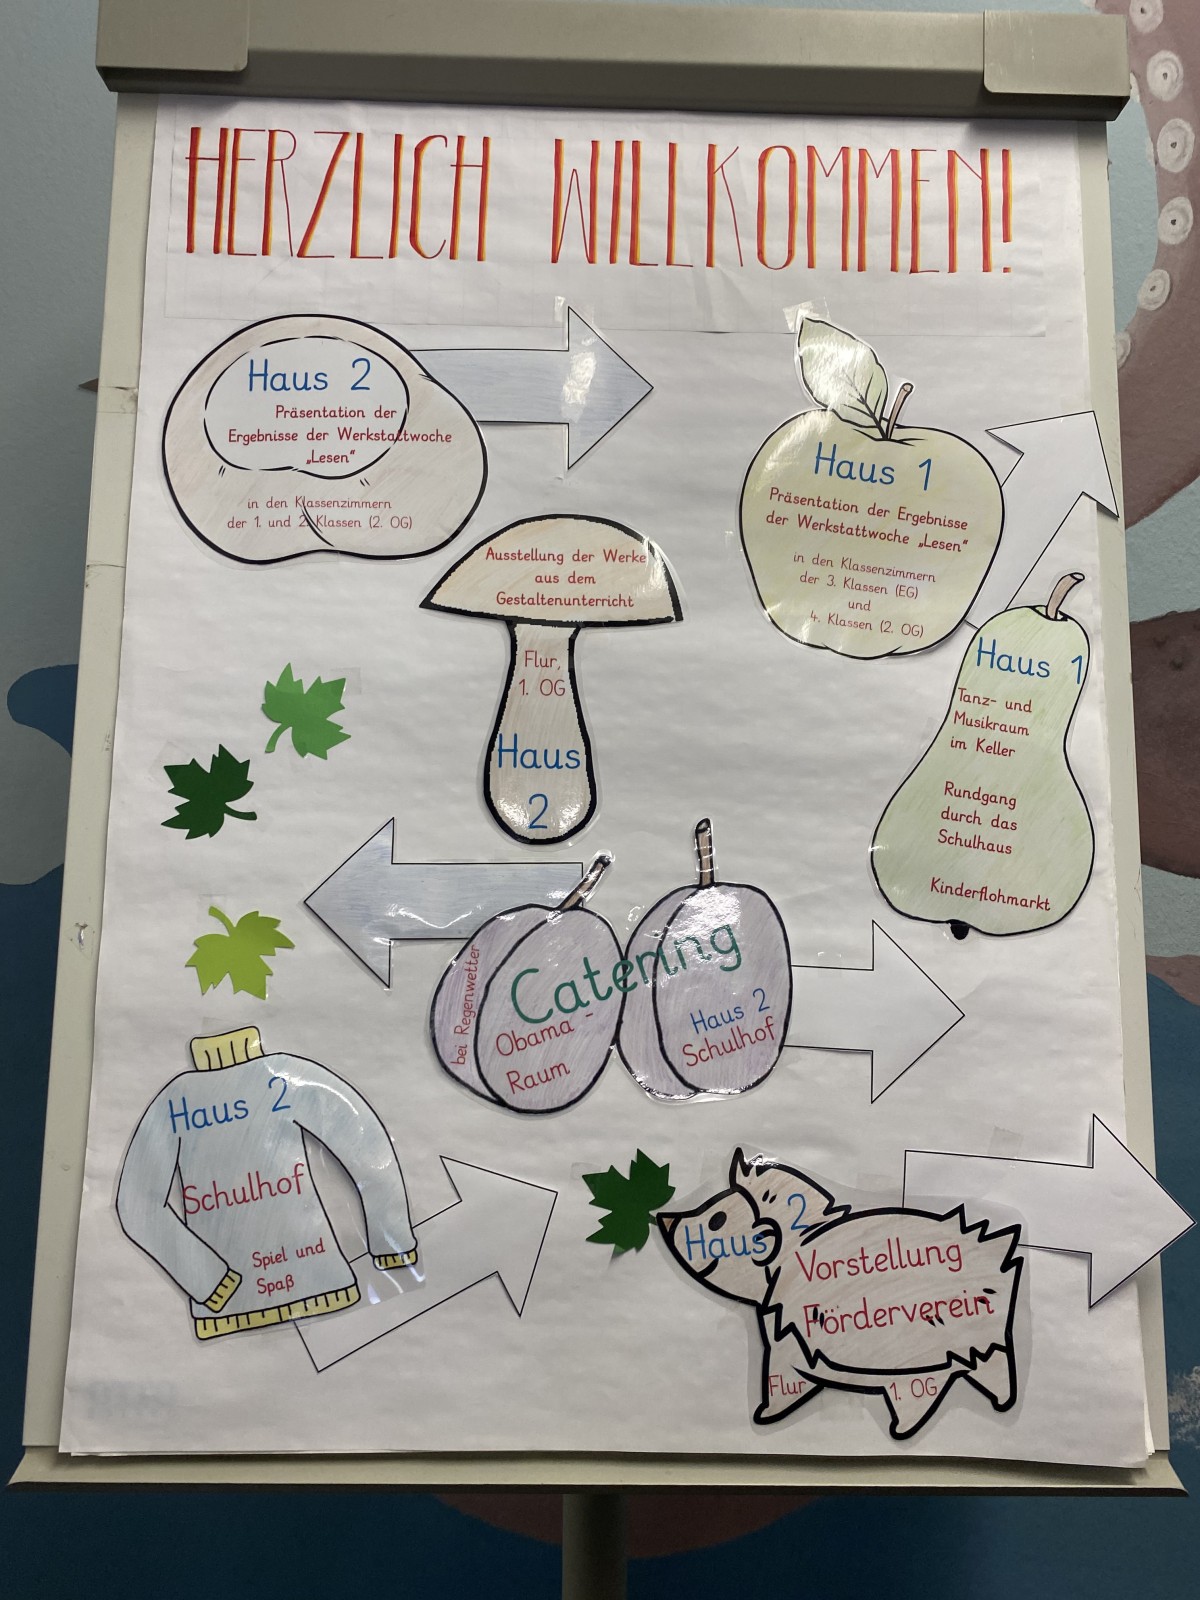 HERZLICH WILLKOMMEN!
Haus 2
Präsentation der
Ergebnisse der Werkstattwoche
„Lesen“
in den Klassenzimmern
der 1. und 2. Klassen (2. OG)
Haus 1
Präsentation der Ergebnisse
der Werkstattwoche „Lesen“
in den Klassenzimmern
der 3. Klassen (EG)
und
4. Klassen (2. OG)
Ausstellung der Werke
aus dem
Gestaltenunterricht
Flur,
1. OG
Haus
2
Haus 1
Tanz- und
Musikraum
im Keller
Rundgang
durch das
Schulhaus
Kinderflohmarkt
Catering
bei Regenwetter
Obama-
Raum
Haus 2
Schulhof
Haus 2
Schulhof
Spiel und
Spaß
Haus 2
Vorstellung
Förderverein
Flur 1. OG